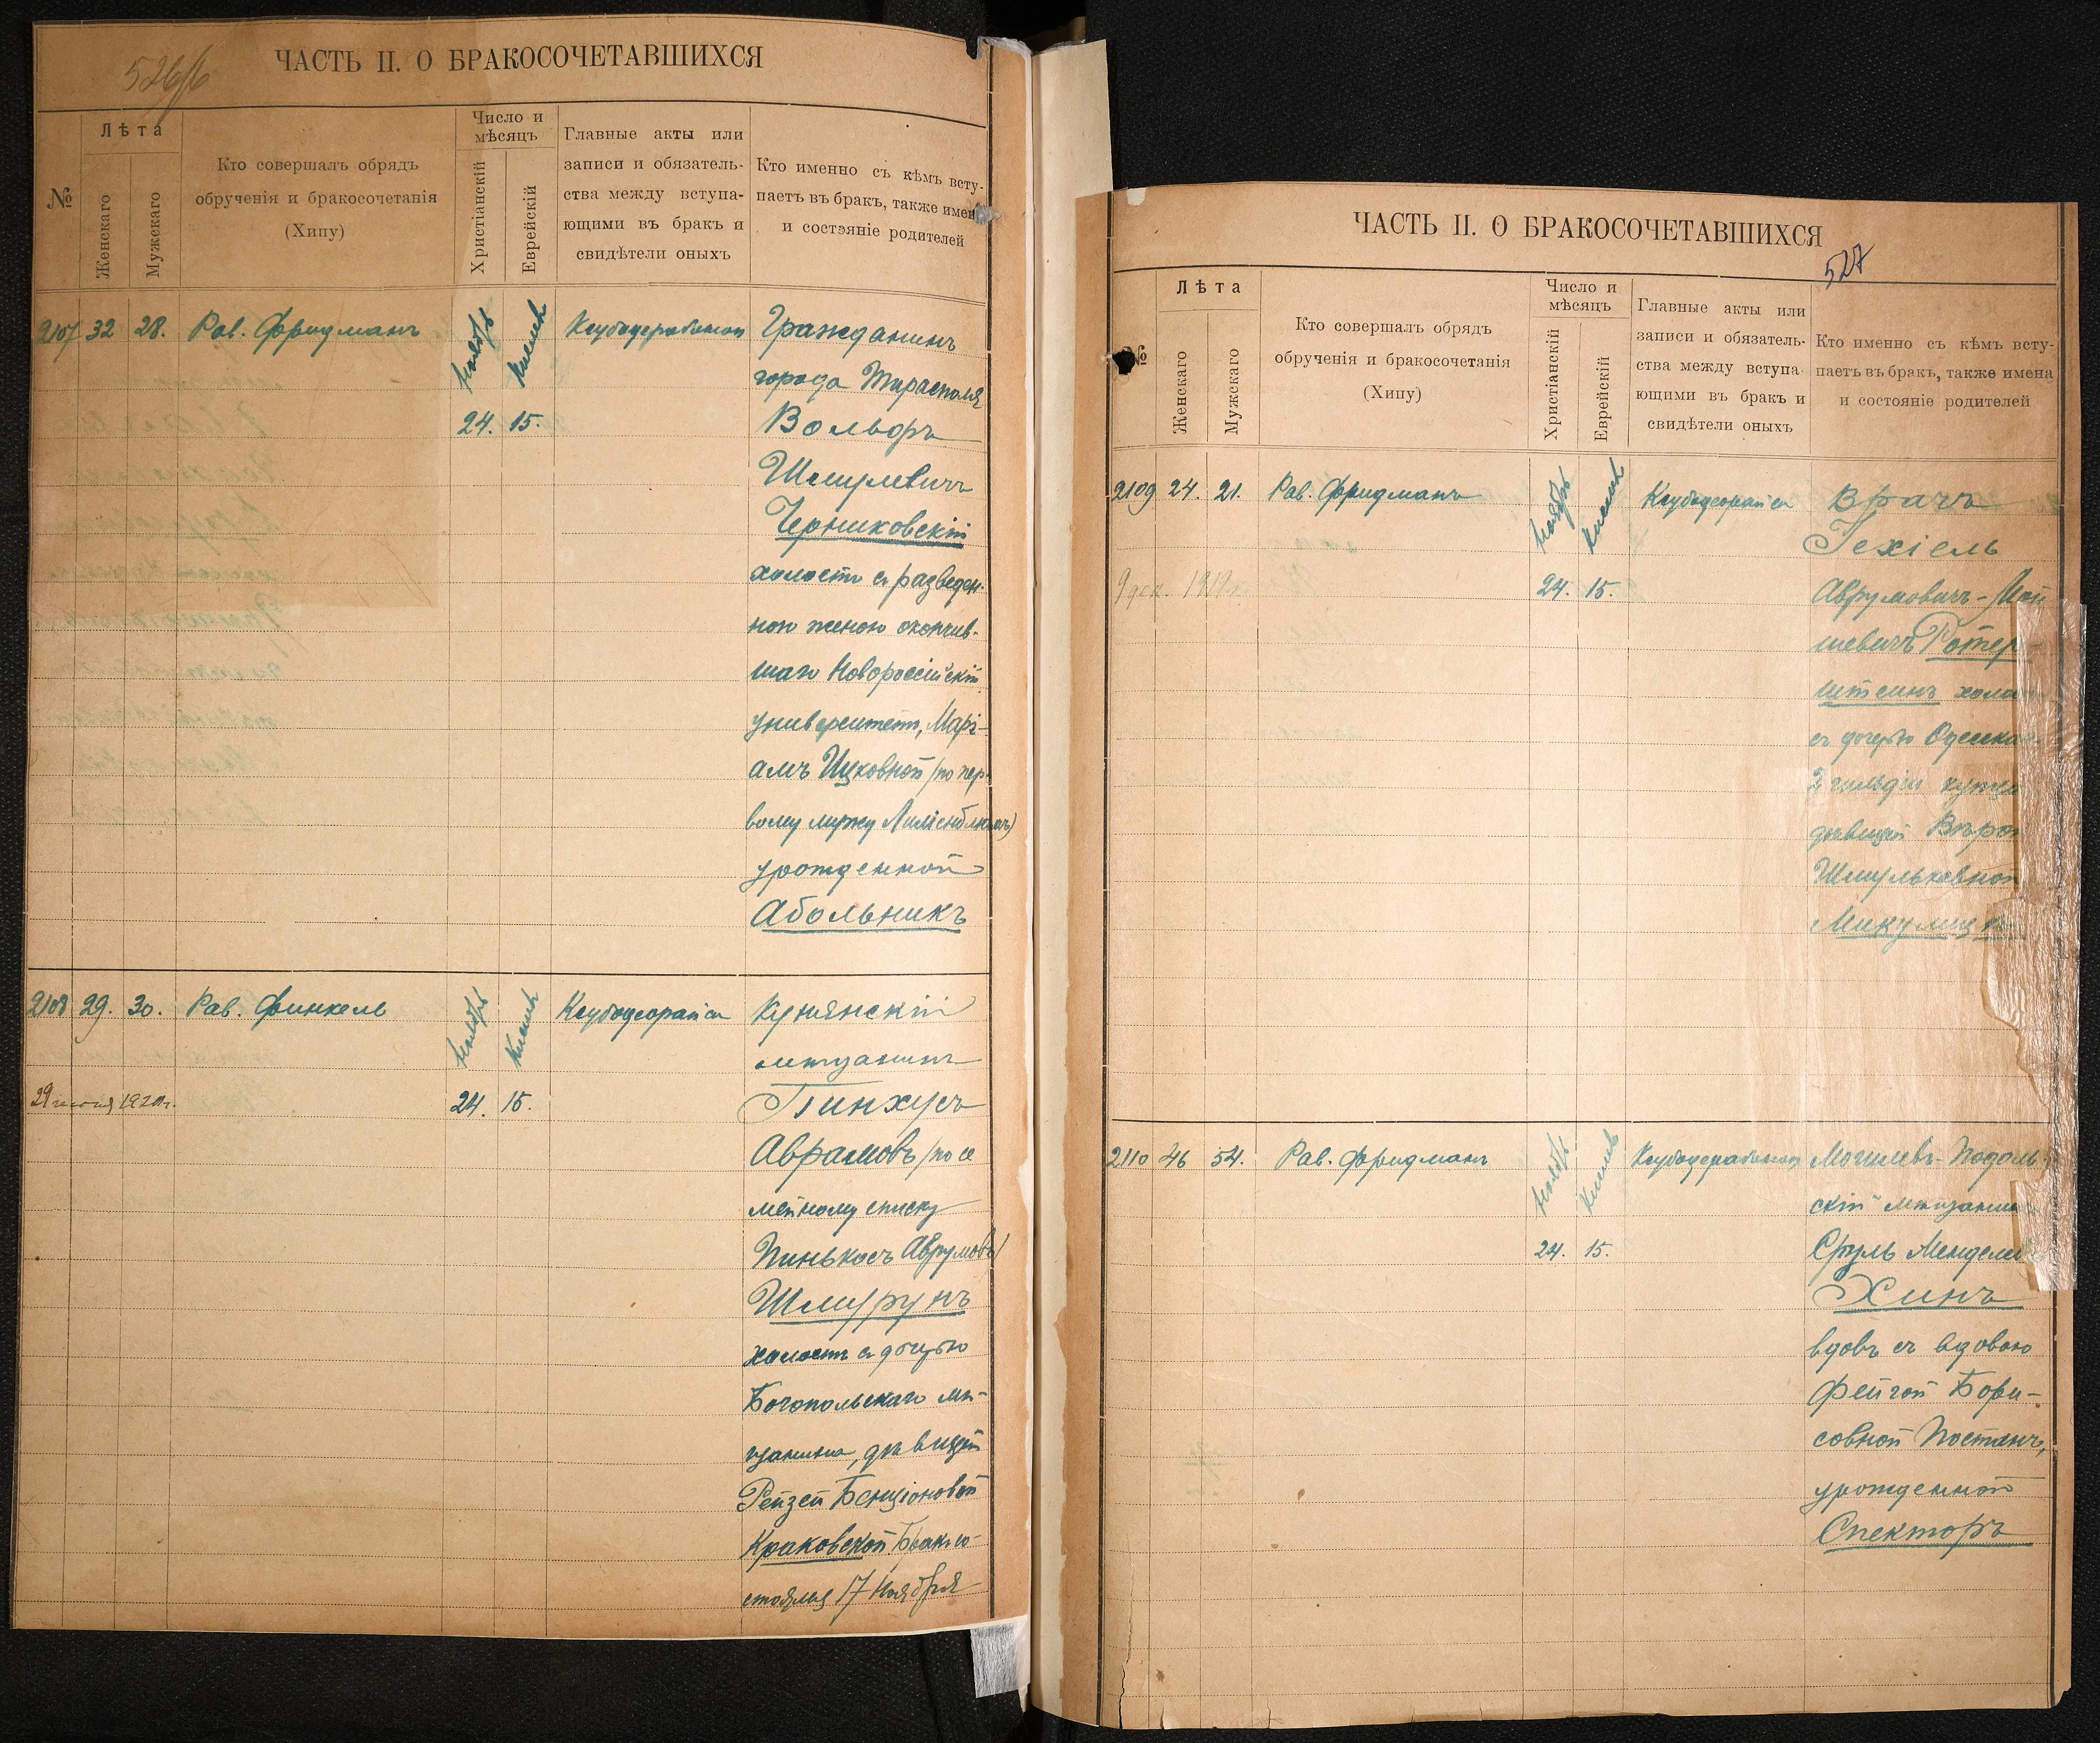 526/б
ЧАСТЬ II. О БРАКОСОЧЕТАВШИХСЯ
№
Лѣта
Женскаго
Мужскаго
Кто совершалъ обрядъ
обрученія и бракосочетанія
(Хипу)
Число и
мѣсяцъ
Христіанскій
Еврейскій
Главные акты или
записи и обязатель-
ства между вступа-
ющими въ бракъ и
свидѣтели оныхъ
Кто именно съ кѣмъ всту-
паетъ въ бракъ, также имена
и состояніе родителей
2107 32 28. Рав. Фридманъ Ноябрь Кислевъ Гражданинъ
города Тирасполя
24. 15. Вольфъ
Шмулевичъ
Черниковскій
холостъ съ разведен-
ной женою окончив-
шаго Новороссійскій
университетъ, Марі-
амъ Ицковной /по пер-
вому мужу Лиліенблюмъ)
урожденной
Абольникъ
2108 29. 30. Рав. Финкель Ноябрь Кислевъ Ксубодеорайса Купянскій
мѣщанинъ
29 1920г. 24. 15. Пинхусъ
Абрамовъ /по се
мейному списку
Пинькасъ Аврумовъ/
Шмурунъ
холостъ съ дочерью
Богопольскаго мѣ-
щанина, дѣвицей
Рейзей Бенціоновой
Краковской. Бракъ со-
стоялся 17 Ноября
ЧАСТЬ II. О БРАКОСОЧЕТАВШИХСЯ
527
№
Лѣта
Женскаго
Мужскаго
Кто совершалъ обрядъ
обрученія и бракосочетанія
(Хипу)
Число и
мѣсяцъ
Христіанскій
Еврейскій
Главные акты или
записи и обязатель-
ства между вступа-
ющими въ бракъ и
свидѣтели оныхъ
Кто именно съ кѣмъ всту-
паетъ въ бракъ, также имена
и состояніе родителей
2109 24. 21. Рав. Фридманъ Ноябрь Кислевъ Ксубодеорайса Врачъ
Іехіель
9 дек. 1919г. 24. 15. Аврумовичъ-Мой
шевичъ Ротер-
штейнъ холос
съ дочерью Одесска
2 гильдіи купца
дѣвицей Вѣро
Шмульковной
Микулиц
2110 46 54. Рав. Фридманъ Ноябрь Кислевъ Могилевъ-Подоль
скій мѣщанин
24. 15. Сруль Мендел
Хинъ
вдовъ съ вдовою
Фейгой Бори-
совной Постанъ,
урожденной
Спекторъ